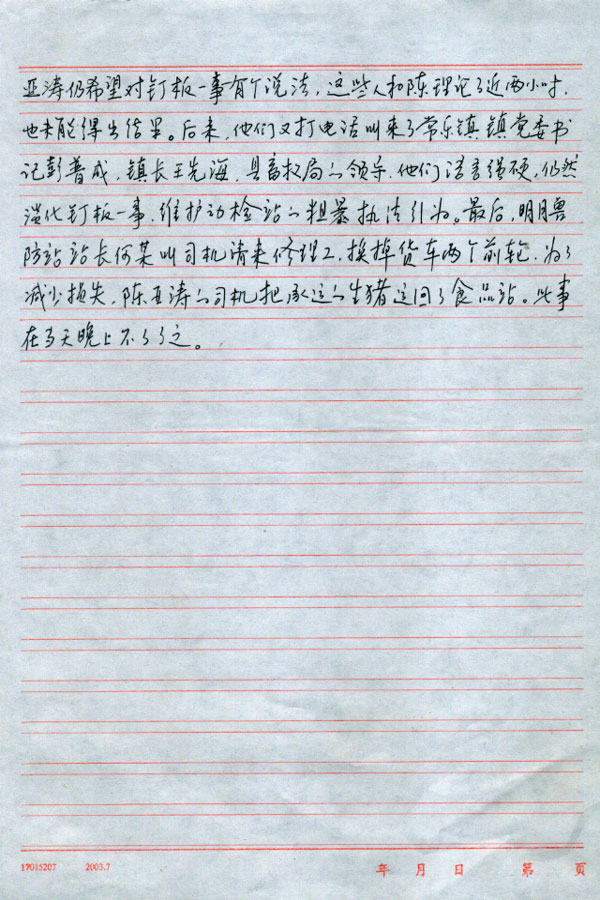 亚涛仍希望对钉板一事有个说法,这些人和陈理论了近两小时,
也未能得出结果。后来,他们又打电话叫来了常乐镇镇党委书
记彭普成,镇长王先海,县畜牧局的领导,他们语言强硬,仍然
淡化钉板一事,维护动检站的粗暴执法引为。最后,明月兽
防站站长何某叫司机请来修理工,换掉货车两个前轮,为了
减少损失,陈亚涛的司机把承运的生猪运回了食品站。此事
在当天晚上不了了之。
17015207 2003.7 年 月 日 第 页